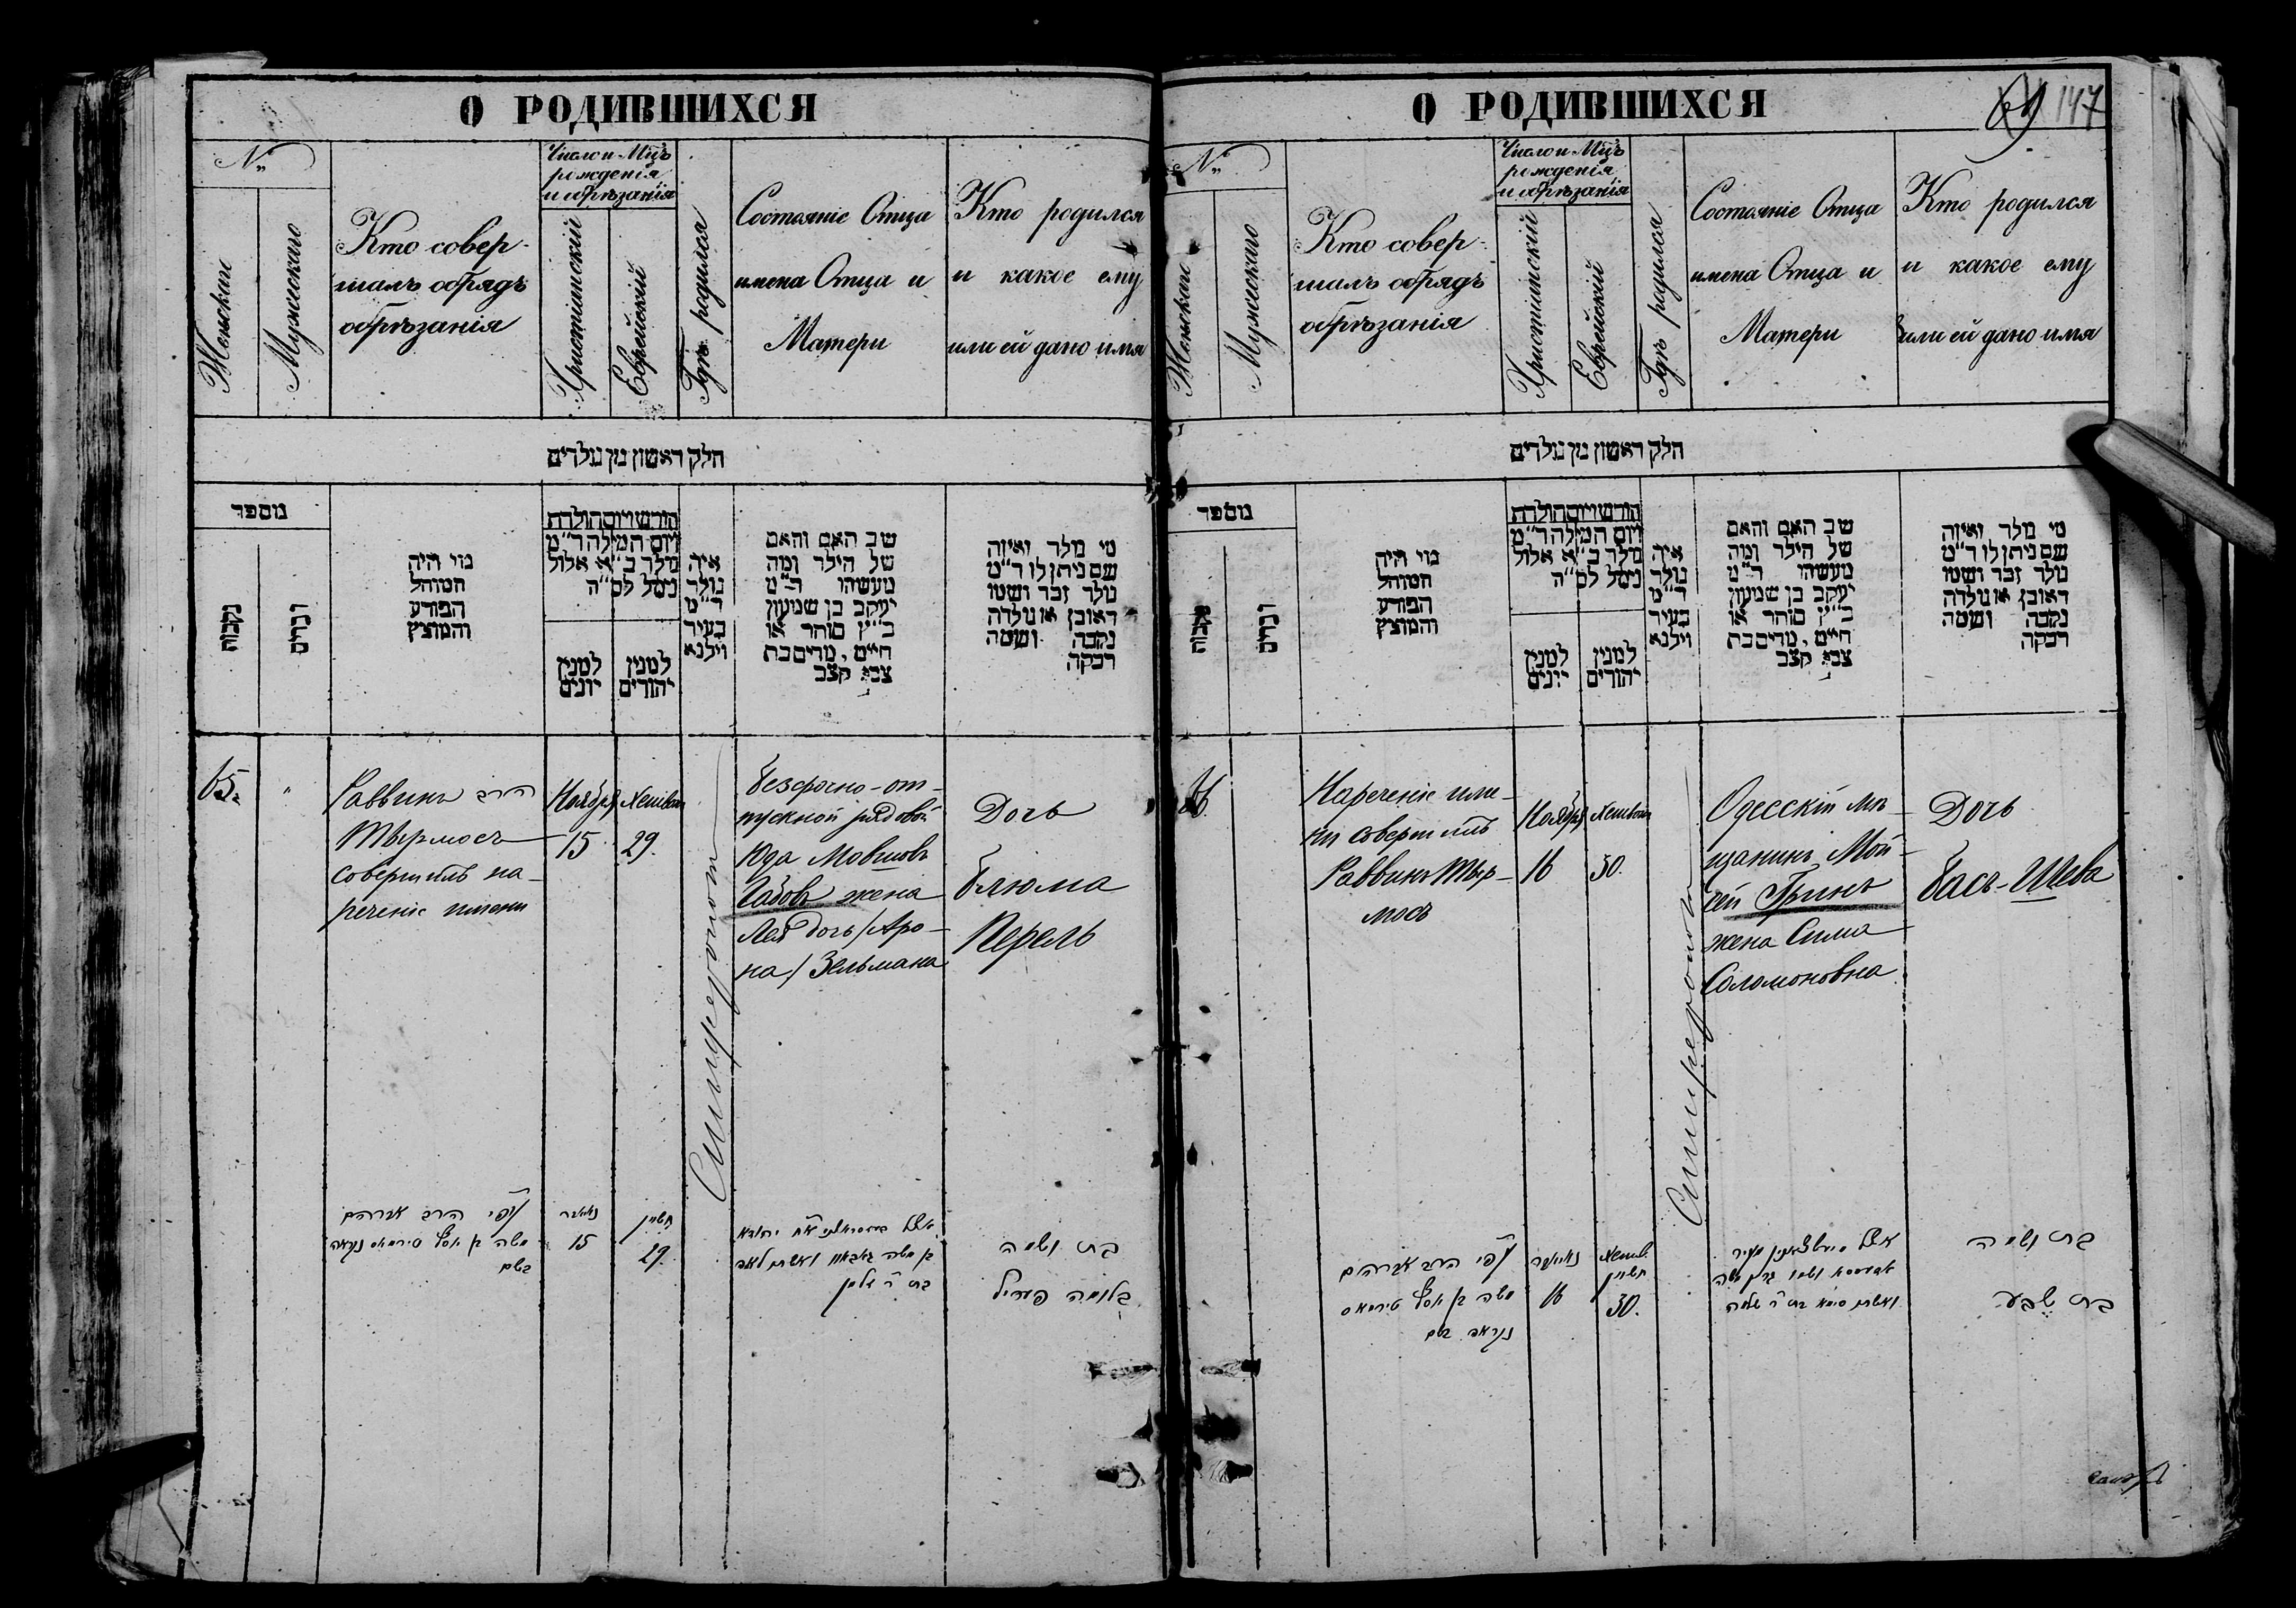 О РОДИВШИХСЯ
№
Женскаго
Мужескаго
Кто совер-
шалъ обрядъ
обрѣзанія
Число и Мцъ
рожденія
и обрѣзанія
Христіанскій
Еврейскій
Гдѣ родился
Состояніе Отца
имена Отца и
Матери
Кто родился
и какое ему
или ей дано имя
חלק ראשון מן נולדים
מספר
נקבות
זכרים
מי היה
המוהל
הפורע
והמוצץ
חודש ויום הולדת
ויום המילה ר״מ
נולד ב״א אלול
נימל לס״ה
למנין
יונים
למנין
יהודים
איה
נולד
ד״מ
בעיר
וילנא
שב האם והאם
של הילד ומה
מעשהו ד״מ
יעקב בן שמעון
כ״ץ סוחר או
חיים, מרים בת
צבי קצב
מי נולד ואיזה
שם ניתן לו ד״מ
נולד זכר ושמו
ראובן או נולדה
נקבה ושמה
רבקה
65.
"
Раввинъ הרב
Тырмосъ
совершилъ на-
реченіе имени
Ноября
15
Хешвон
29.
Симферополь
безсрочно-от-
пускной рядовой
Юда Мовшовъ
Габовъ жена
Лея дочь /Аро-
на/ Зельмана
Дочь
Блюма
Перель
ע״פי הרב אברהם
משה בן יוסף טירמאס נקראה
בשם
נאיאבר
15
חשון
29.
בן משה
בת ושמה
בלומה פעריל
О РОДИВШИХСЯ
69 147
№
Женскаго
Мужескаго
Кто совер-
шалъ обрядъ
обрѣзанія
Число и Мцъ
рожденія
и обрѣзанія
Христіанскій
Еврейскій
Гдѣ родился
Состояніе Отца
имена Отца и
Матери
Кто родился
и какое ему
или ей дано имя
חלק ראשון מן נולדים
מספר
נקבות
זכרים
מי היה
המוהל
הפורע
והמוצץ
חודש ויום הולדת
ויום המילה ר״מ
נולד ב״א אלול
נימל לס״ה
למנין
יונים
למנין
יהודים
איה
נולד
ד״מ
בעיר
וילנא
שב האם והאם
של הילד ומה
מעשהו ד״מ
יעקב בן שמעון
כ״ץ סוחר או
חיים, מרים בת
צבי קצב
מי נולד ואיזה
שם ניתן לו ד״מ
נולד זכר ושמו
ראובן או נולדה
נקבה ושמה
רבקה
66.
Нареченіе име-
ни совершилъ
Раввинъ Тыр-
мосъ
Ноября
16
Хешвон
30.
Симферополь
Одесскій мѣ-
щанинъ Мой-
сей Гринъ
жена Сима
Соломоновна
Дочь
Басъ-Шева
ע״פי הרב אברהם
משה בן יוסף טירמאס
נקראה בשם
נאיאבר
16
Хешв.
חשון
30.
אצל מעשצאנין מעיר
אדעסא ושמו גרין משה
ואשתו סימא בת ר׳ שלמה
בת ושמה
בת שבע